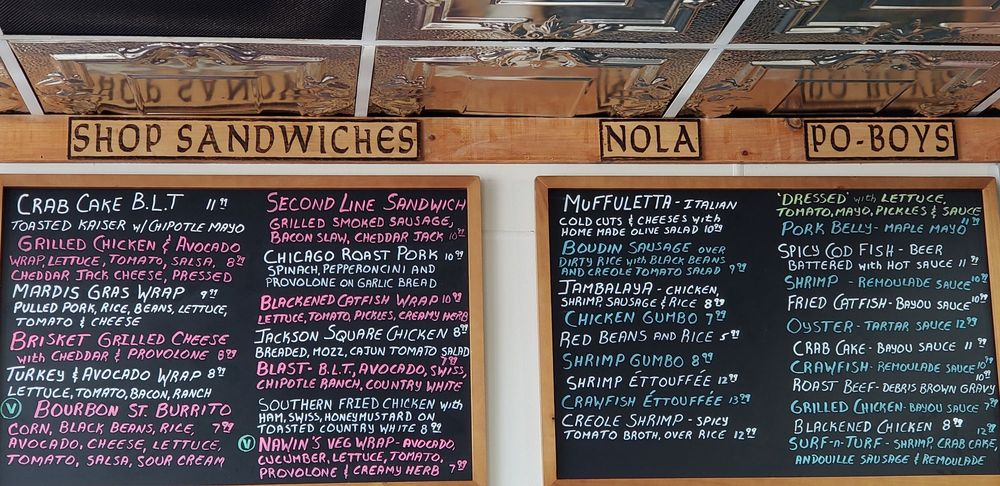 SHOP SANDWICHES
CRAB CAKE B.L.T 11 99
TOASTED KAISER W/CHIPOTLE MAYO
GRILLED CHICKEN & AVOCADO
WRAP, LETTUCE, TOMATO, SALSA, 8 99
CHEDDAR JACK CHEESE, PRESSED
MARDIS GRAS WRAP 9 99
PULLED PORK, RICE, BEANS, LETTUCE,
TOMATO & CHEESE
BRISKET GRILLED CHEESE
with CHEDDAR & PROVOLONE 8 99
TURKEY & AVOCADO WRAP 8 99
LETTUCE, TOMATO, BACON, RANCH
V BOURBON ST. BURRITO
CORN, BLACK BEANS, RICE, 7 99
AVOCADO, CHEESE, LETTUCE,
TOMATO, SALSA, SOUR CREAM
SECOND LINE SANDWICH
GRILLED SMOKED SAUSAGE,
BACON SLAW, CHEDDAR JACK 10 99
CHICAGO ROAST PORK 10 99
SPINACH, PEPPERONCINI AND
PROVOLONE ON GARLIC BREAD
BLACKENED CATFISH WRAP 10 99
LETTUCE, TOMATO, PICKLES, CREAMY HERB
JACKSON SQUARE CHICKEN 8 99
BREADED, MOZZ, CAJUN TOMATO SALAD
BLAST- B.L.T, AVOCADO, SWISS, 7 99
CHIPOTLE RANCH, COUNTRY WHITE
SOUTHERN FRIED CHICKEN with
HAM, SWISS, HONEYMUSTARD ON
TOASTED COUNTRY WHITE 8 99
V NAWIN'S VEG WRAP- AVOCADO,
CUCUMBER, LETTUCE, TOMATO,
PROVOLONE & CREAMY HERB 7 99
NOLA
MUFFULETTA - ITALIAN
COLD CUTS & CHEESES with
HOME MADE OLIVE SALAD 10 99
BOUDIN SAUSAGE OVER
DIRTY RICE with BLACK BEANS
AND CREOLE TOMATO SALAD 9 99
JAMBALAYA - CHICKEN,
SHRIMP, SAUSAGE & RICE 8 99
CHICKEN GUMBO 7 99
RED BEANS AND RICE 5 99
SHRIMP GUMBO 8 99
SHRIMP ÉTTOUFFÉE 12 99
CRAWFISH ÉTTOUFFÉE 13 99
CREOLE SHRIMP - SPICY
TOMATO BROTH, OVER RICE 12 99
PO-BOYS
'DRESSED' with LETTUCE,
TOMATO, MAYO, PICKLES & SAUCE
PORK BELLY- MAPLE MAYO 11 99
SPICY COD FISH - BEER
BATTERED with HOT SAUCE 11 99
SHRIMP - REMOULADE SAUCE 10 99
FRIED CATFISH- BAYOU SAUCE 10 99
OYSTER - TARTAR SAUCE 12 99
CRAB CAKE- BAYOU SAUCE 11 99
CRAWFISH- REMOULADE SAUCE 10 99
ROAST BEEF- DEBRIS BROWN GRAVY 10 99
GRILLED CHICKEN- BAYOU SAUCE 7 99
BLACKENED CHICKEN 8 99
SURF-n-TURF - SHRIMP, CRAB CAKE, 12 99
ANDOUILLE SAUSAGE & REMOULADE